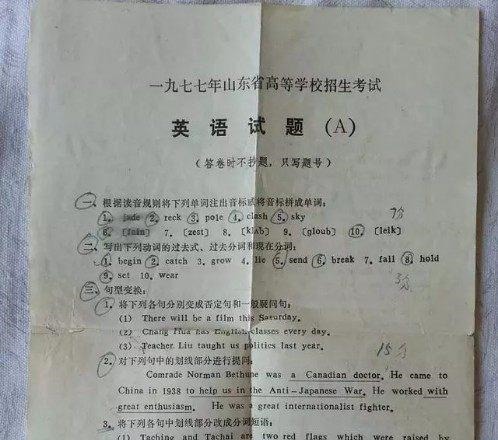 一九七七年山东省高等学校招生考试
英语试题（A）
（答卷时不抄题，只写题号）
一、根据读音规则将下列单词注出音标或将音标拼成单词：
1. jade 2. reck 3. pole 4. clash 5. sky
7分
6. [fain] 7. [zest] 8. [klʌb] 9. [gloub] 10. [leik]
二、写出下列动词的过去式、过去分词和现在分词：
1. begin 2. catch 3. grow 4. lie 5. send 6. break 7. fall 8. hold
9. set 10. wear
三、句型变换：
1. 将下列各句分别变成否定句和一般疑问句：
(1) There will be a film this Saturday.
(2) Chang Hua has English classes every day.
(3) Teacher Liu taught us politics last year.
15分
2. 对下列句中的划线部分进行提问：
Comrade Norman Bethune was a Canadian doctor. He came to
China in 1938 to help us in the Anti-Japanese War. He worked with
great enthusiasm. He was a great internationalist fighter.
3. 将下列各句中划线部分改成分词短语：
(1) Taching and Tachai are two red flags which were raised by